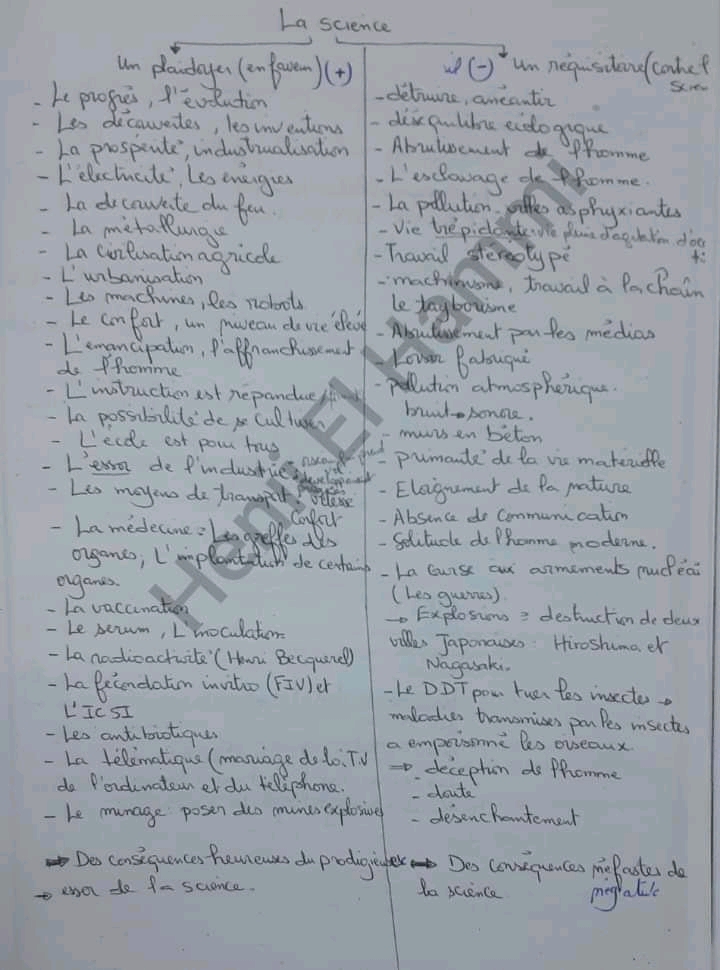 La science
Un plaidoyer (en faveur) (+)
- Le progrès, l'évolution
- Les découvertes, les inventions
- La prospérité, industrialisation
- L'électricité, Les énergies
- La découverte du feu.
- La métallurgie
- La civilisation agricole
- L'urbanisation
- Les machines, les robots
- Le confort, un niveau de vie élevé
- L'émancipation, l'affranchissement
de l'homme
- L'instruction est répandue
- La possibilité de se cultiver
- L'école est pour tous
- L'essor de l'industrie
développement
- Les moyens de transport: vitesse
Confort
- La médecine: Les greffes des
organes, L'implantation de certains
organes.
- La vaccination
- Le serum, L'inoculation
- La radioactivité (Henri Becquerel)
- La fécondation invitro (FIV) et
L'ICSI
- Les antibiotiques
- La télématique (mariage de la T.V
de l'ordinateur et du téléphone.
- Le minage: poser des mines explosives
⇒ Des conséquences heureuses du prodigieux
→ essor de la science.
(-) Un réquisitoire (contre l
Scien
- détruire, anéantir
- déséquilibre écologique
- Abrutissement de l'homme
- L'esclavage de l'homme.
- La pollution, villes asphyxiantes
- Vie trépidante: vie pleine d'agitation d'acc
ti
- Travail stéréotypé
- machinisme, travail à la chaîn
le taylorisme
- Abrutissement par les médias
Loisir fabriqué
- pollution atmosphérique.
bruit → sonore.
- murs en béton
- primauté de la vie matérielle
- Eloignement de la nature
- Absence de communication
- Solitude de l'homme moderne.
- La course aux armements nucléai
(Les guerres).
→ Explosions = destruction de deux
villes Japonaises: Hiroshima et
Nagasaki.
- Le DDT pour tuer les insectes →
maladies transmises par les insectes
a empoisonné les oiseaux.
⇒ - déception de l'homme
- doute
- désenchantement
⇒ Des conséquences néfastes de
la science négative
Henia El Hammi